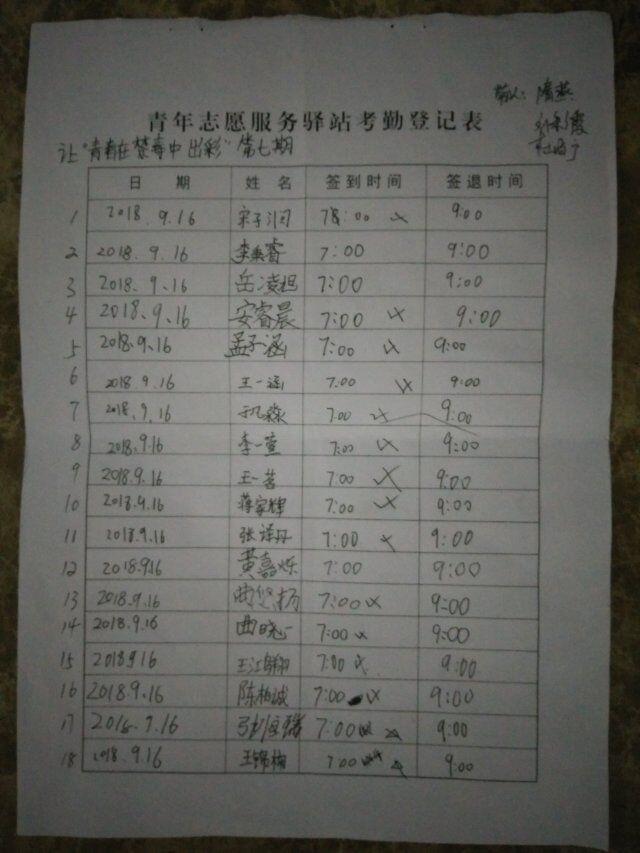 青年志愿服务驿站考勤登记表
让"青春在禁毒中出彩"第七期
日 期 姓 名 签到时间 签退时间
1 2018.9.16 宋子润 7:00 9:00
2 2018.9.16 李秉睿 7:00 9:00
3 2018.9.16 岳凌 7:00 9:00
4 2018.9.16 安睿晨 7:00 9:00
5 2018.9.16 孟子涵 7:00 9:00
6 2018.9.16 王一涵 7:00 9:00
7 2018.9.16 7:00 9:00
8 2018.9.16 李一萱 7:00 9:00
9 2018.9.16 王一茗 7:00 9:00
10 2018.9.16 蒋家辉 7:00 9:00
11 2018.9.16 张译丹 7:00 9:00
12 2018.9.16 黄嘉烁 7:00 9:00
13 2018.9.16 曲悠扬 7:00 9:00
14 2018.9.16 曲晓一 7:00 9:00
15 2018.9.16 王江翔 7:00 9:00
16 2018.9.16 陈柏诚 7:00 9:00
17 7:00 9:00
18 2018.9.16 王锦梅 7:00 9:00